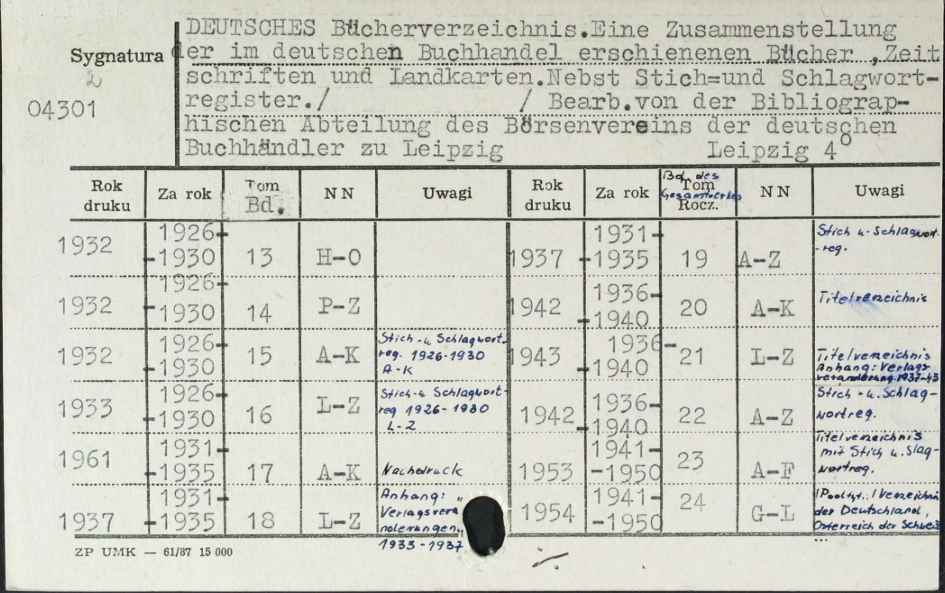 DEUTSCHES Bücherverzeichnis.Eine Zusammenstellung
Sygnatura der im deutschen Buchhandel erschienenen Bücher ,Zeit
2 schriften und Landkarten.Nebst Stich=und Schlagwort-
04301 register./ / Bearb.von der Bibliograp-
hischen Abteilung des Börsenvereins der deutschen
Buchhändler zu Leipzig Leipzig 4⁰
Rok druku Za rok Tom Bd. NN Uwagi Rok druku Za rok Bd. des Gesamtwerkes Tom Rocz. NN Uwagi
1932 1926-1930 13 H-O 1937 1931-1935 19 A-Z Stich u. Schlagwort-reg.
1932 1926-1930 14 P-Z 1942 1936-1940 20 A-K Titelverzeichnis
1932 1926-1930 15 A-K Stich-u Schlagwort-reg. 1926-1930 A-K 1943 1936-1940 21 L-Z Titelverzeichnis Anhang: Verlagsveränderung 1937-43
1933 1926-1930 16 L-Z Stich-u Schlagwort-reg 1926-1930 L-Z 1942 1936-1940 22 A-Z Stich-u. Schlag-wortreg.
1961 1931-1935 17 A-K Nachdruck 1953 1941-1950 23 A-F Titelverzeichnis mit Stich u. Slag-wortreg.
1937 1931-1935 18 L-Z Anhang: Verlagsveränderungen 1933-1937 1954 1941-1950 24 G-L Verzeichnis der Deutschland, Österreich der Schweiz ...
ZP UMK — 61/87 15 000